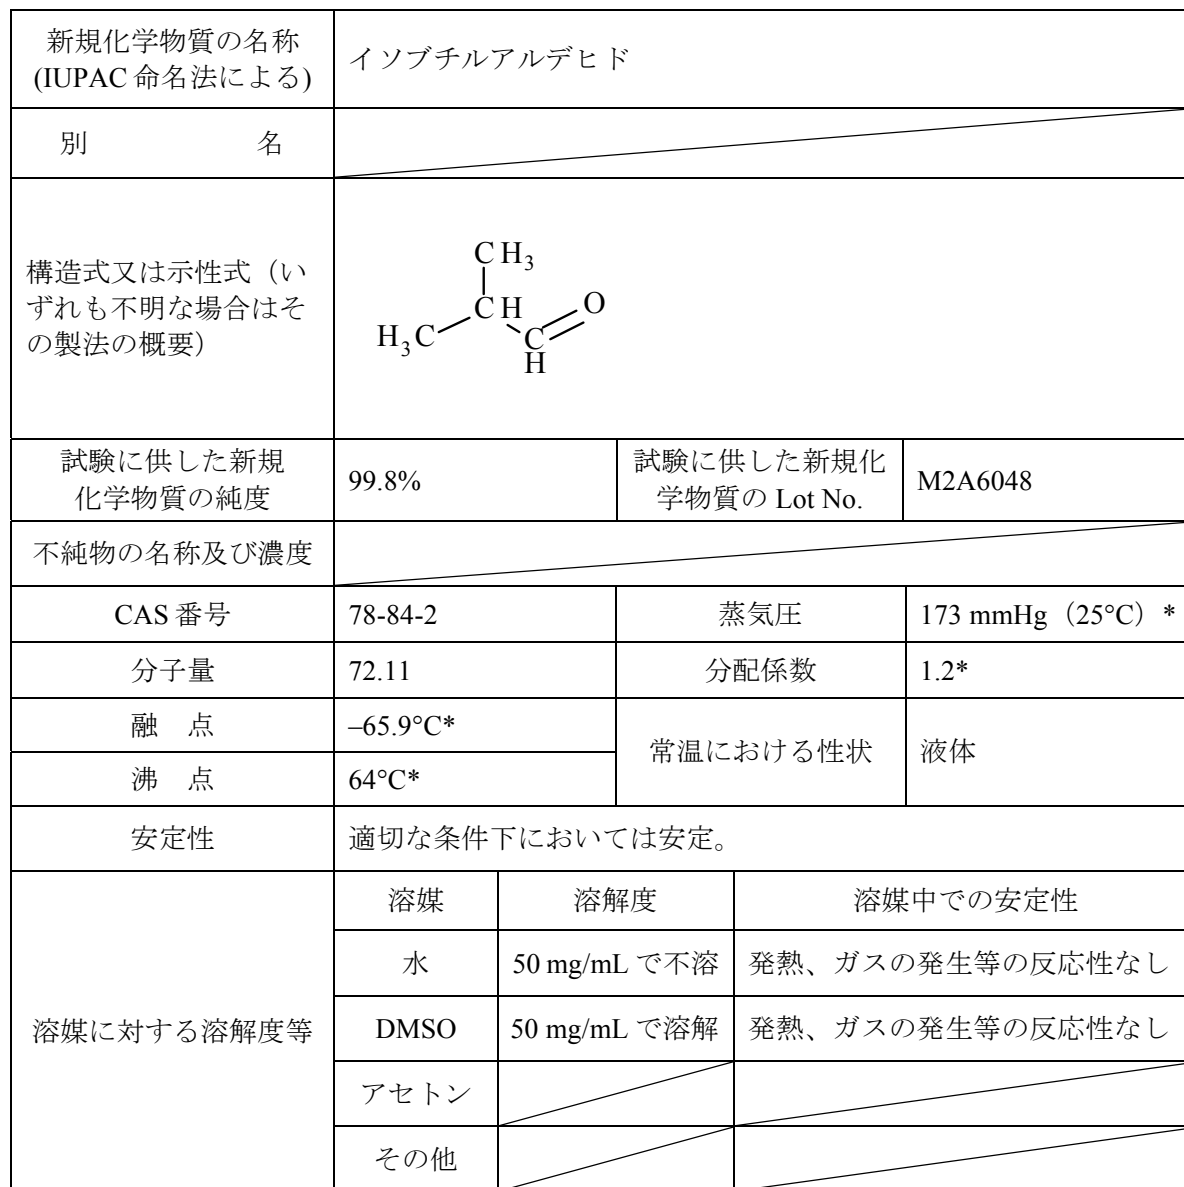 新規化学物質の名称
(IUPAC 命名法による)
イソブチルアルデヒド
別 名
構造式又は示性式（い
ずれも不明な場合はそ
の製法の概要）
CH3
CH
O
H3C
C
H
試験に供した新規
化学物質の純度
99.8%
試験に供した新規化
学物質の Lot No.
M2A6048
不純物の名称及び濃度
CAS 番号
78-84-2
蒸気圧
173 mmHg（25°C）*
分子量
72.11
分配係数
1.2*
融 点
–65.9°C*
常温における性状
液体
沸 点
64°C*
安定性
適切な条件下においては安定。
溶媒に対する溶解度等
溶媒
溶解度
溶媒中での安定性
水
50 mg/mL で不溶
発熱、ガスの発生等の反応性なし
DMSO
50 mg/mL で溶解
発熱、ガスの発生等の反応性なし
アセトン
その他